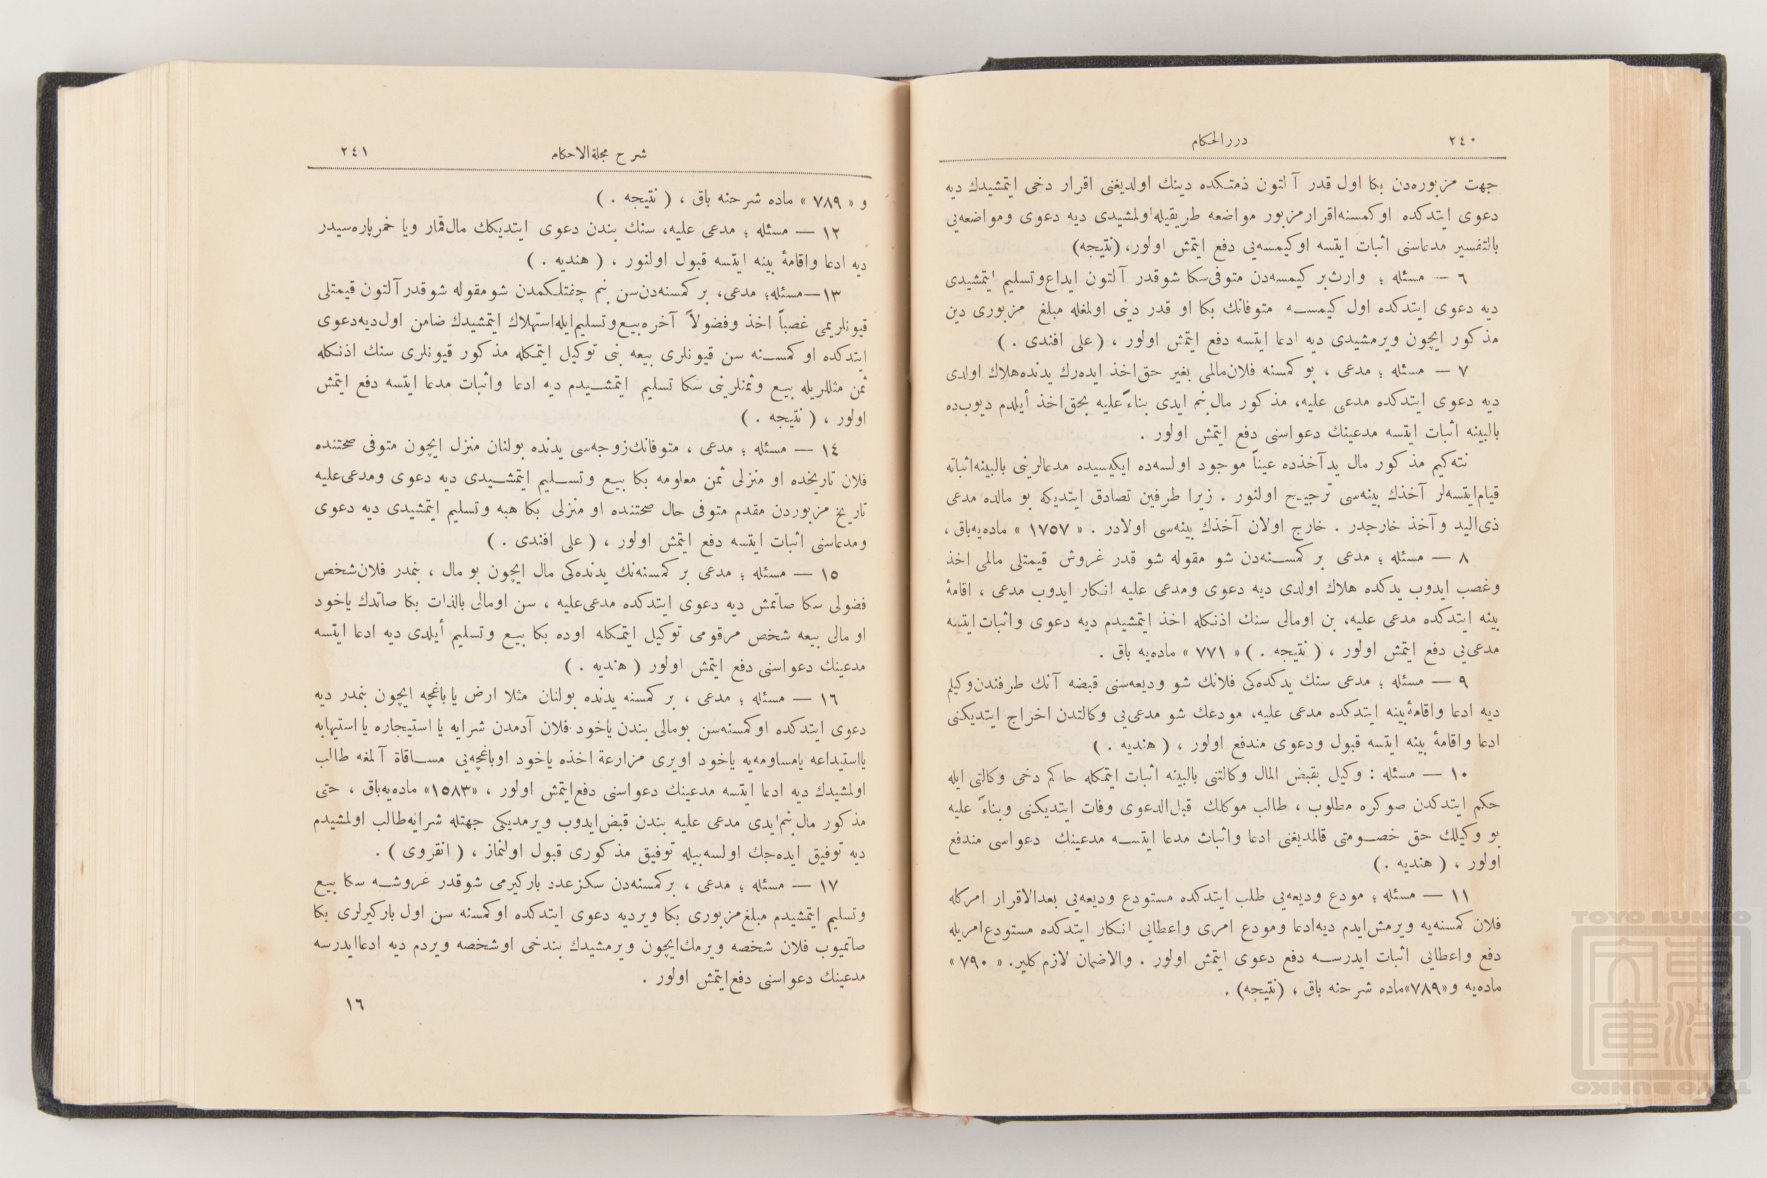 ٢٤٠
درر الحكام
جهت مزبوره‌دن بكا اول قدر آلتون ذمتكده دينك اولديغنى اقرار دخى ايتمشيدك ديه
دعوى ايتدكده اوكمسنه اقرار مزبور مواضعه طريقيله اولمشيدى ديه دعوى ومواضعه‌يى
بالتفسير مدعاسنى اثبات ايتسه اوكيمسه‌يى دفع ايتمش اولور، (نتيجه)
٦ — مسئله ؛ وارث بر كيمسه‌دن متوفى سكا شو قدر آلتون ايداع وتسليم ايتمشيدى
ديه دعوى ايتدكده اول كيمسـه متوفانك بكا او قدر دينى اولمغله مبلغ مزبورى دين
مذكور ايچون ويرمشيدى ديه ادعا ايتسه دفع ايتمش اولور ، (على افندى .)
٧ — مسئله ؛ مدعى ، بو كمسنه فلان مالمى بغير حق اخذ ايده‌رك يدنده هلاك اولدى
ديه دعوى ايتدكده مدعى عليه، مذكور مال بنم ايدى بناءً عليه بحق اخذ أيلدم ديوب‌ده
بالبينه اثبات ايتسه مدعينك دعواسنى دفع ايتمش اولور .
نته‌كيم مذكور مال يد آخذده عيناً موجود اولسه‌ده ايكيسيده مدعالرينى بالبينه اثباته
قيام ايتسه‌لر آخذك بينه‌سى ترجيح اولنور . زيرا طرفين تصادق ايتديكه بو مالده مدعى
ذى‌اليد و آخذ خارجدر . خارج اولان آخذك بينه‌سى اولادر . « ١٧٥٧ » ماده‌يه باق ،
٨ — مسئله ؛ مدعى بر كمسـنه‌دن شو مقوله شو قدر غروش قيمتلى مالمى اخذ
وغصب ايدوب يدكده هلاك اولدى ديه دعوى ومدعى عليه انكار ايدوب مدعى ، اقامهٔ
بينه ايتدكده مدعى عليه، بن اومالى سنك اذنكله اخذ ايتمشيدم ديه دعوى واثبات ايتسه
مدعى‌يى دفع ايتمش اولور ، ( نتيجه . ) « ٧٧١ » ماده‌يه باق .
٩ — مسئله ؛ مدعى سنك يدكده‌كى فلانك شو وديعه‌سنى قبضه آنك طرفندن وكيلم
ديه ادعا واقامهٔ بينه ايتدكده مدعى عليه، مودعك شو مدعى‌يى وكالتدن اخراج ايتديكنى
ادعا واقامهٔ بينه ايتسه قبول ودعوى مندفع اولور ، ( هنديه . )
١٠ — مسئله : وكيل بقبض المال وكالتنى بالبينه اثبات ايتمكله حاكم دخى وكالتى ايله
حكم ايتدكدن صوكره مطلوب ، طالب موكلك قبل الدعوى وفات ايتديكنى وبناءً عليه
بو وكيلك حق خصـومتى قالمديغنى ادعا واثبات مدعا ايتسـه مدعينك دعواسى مندفع
اولور ، ( هنديه .)
١١ — مسئله ؛ مودع وديعه‌يى طلب ايتدكده مستودع وديعه‌يى بعدالاقرار امركله
فلان كمسنه‌يه ويرمش ايدم ديه ادعا ومودع امرى واعطايى انكار ايتدكده مستودع امريله
دفع واعطايى اثبات ايدرسـه دفع دعوى ايتمش اولور . والا ضمان لازم كلير. « ٧٩٠ »
ماده‌يه و «٧٨٩» ماده شرحنه باق ، (نتيجه) .
شرح مجلة الاحكام
٢٤١
و « ٧٨٩ » ماده شرحنه باق ، ( نتيجه . )
١٢ — مسئله ؛ مدعى عليه، سنك بندن دعوى ايتديكك مال قمار ويا خمر پاره‌سيدر
ديه ادعا واقامهٔ بينه ايتسه قبول اولنور ، ( هنديه . )
١٣—مسئله؛ مدعى، بر كمسنه‌دن سن بنم چفتلكمدن شو مقوله شو قدر آلتون قيمتلى
قيونلريمى غصباً اخذ وفضولاً آخره بيع وتسليم ايله استهلاك ايتمشيدك ضامن اول ديه دعوى
ايتدكده او كمسـنه سن قيونلرى بيعه بنى توكيل ايتمكله مذكور قيونلرى سنك اذنكله
ثمن مثللريله بيع وثمنلرينى سكا تسليم ايتمشـيدم ديه ادعا واثبات مدعا ايتسه دفع ايتمش
اولور ، ( نتيجه . )
١٤ — مسئله ؛ مدعى ، متوفانك زوجه‌سى يدنده بولنان منزل ايچون متوفى صحتنده
فلان تاريخده او منزلى ثمن معلومه بكا بيع وتسـليم ايتمشـيدى ديه دعوى ومدعى عليه
تاريخ مزبوردن مقدم متوفى حال صحتنده او منزلى بكا هبه وتسليم ايتمشيدى ديه دعوى
ومدعاسنى اثبات ايتسه دفع ايتمش اولور ، ( على افندى . )
١٥ — مسئله ؛ مدعى بر كمسنه‌نك يدنده‌كى مال ايچون بو مال ، بنمدر فلان شخص
فضولى سكا صاتمش ديه دعوى ايتدكده مدعى عليه ، سن اومالى بالذات بكا صاتدك ياخود
او مالى بيعه شخص مرقومى توكيل ايتمكله اوده بكا بيع وتسليم أيلدى ديه ادعا ايتسه
مدعينك دعواسنى دفع ايتمش اولور ( هنديه . )
١٦ — مسئله ؛ مدعى ، بر كمسنه يدنده بولنان مثلا ارض يا باغچه ايچون بنمدر ديه
دعوى ايتدكده اوكمسنه سن بومالى بندن ياخود فلان آدمدن شرايه يا استيجاره يا استيهابه
يا استيداعه يا مساومه‌يه ياخود اويرى مزارعة اخذه ياخود اوباغچه‌يى مسـاقاة آلمغه طالب
اولمشيدك ديه ادعا ايتسه مدعينك دعواسنى دفع ايتمش اولور ، «١٥٨٣» ماده‌يه باق ، حتى
مذكور مال بنم ايدى مدعى عليه بندن قبض ايدوب ويرمديكى جهتله شرايه طالب اولمشيدم
ديه توفيق ايده‌جك اولسه بيله توفيق مذكورى قبول اولنماز ، ( انقروى ) .
١٧ — مسئله ؛ مدعى ، بر كمسنه‌دن سكز عدد باركيرمى شوقدر غروشـه سكا بيع
وتسليم ايتمشيدم مبلغ مزبورى بكا ويرديه دعوى ايتدكده اوكمسنه سن اول باركيرلرى بكا
صاتميوب فلان شخصه ويرمك ايچون ويرمشيدك بندخى اوشخصه ويردم ديه ادعا ايدرسه
مدعينك دعواسنى دفع ايتمش اولور .
١٦
TOYO BUNKO
東洋文庫
TOYO BUNKO